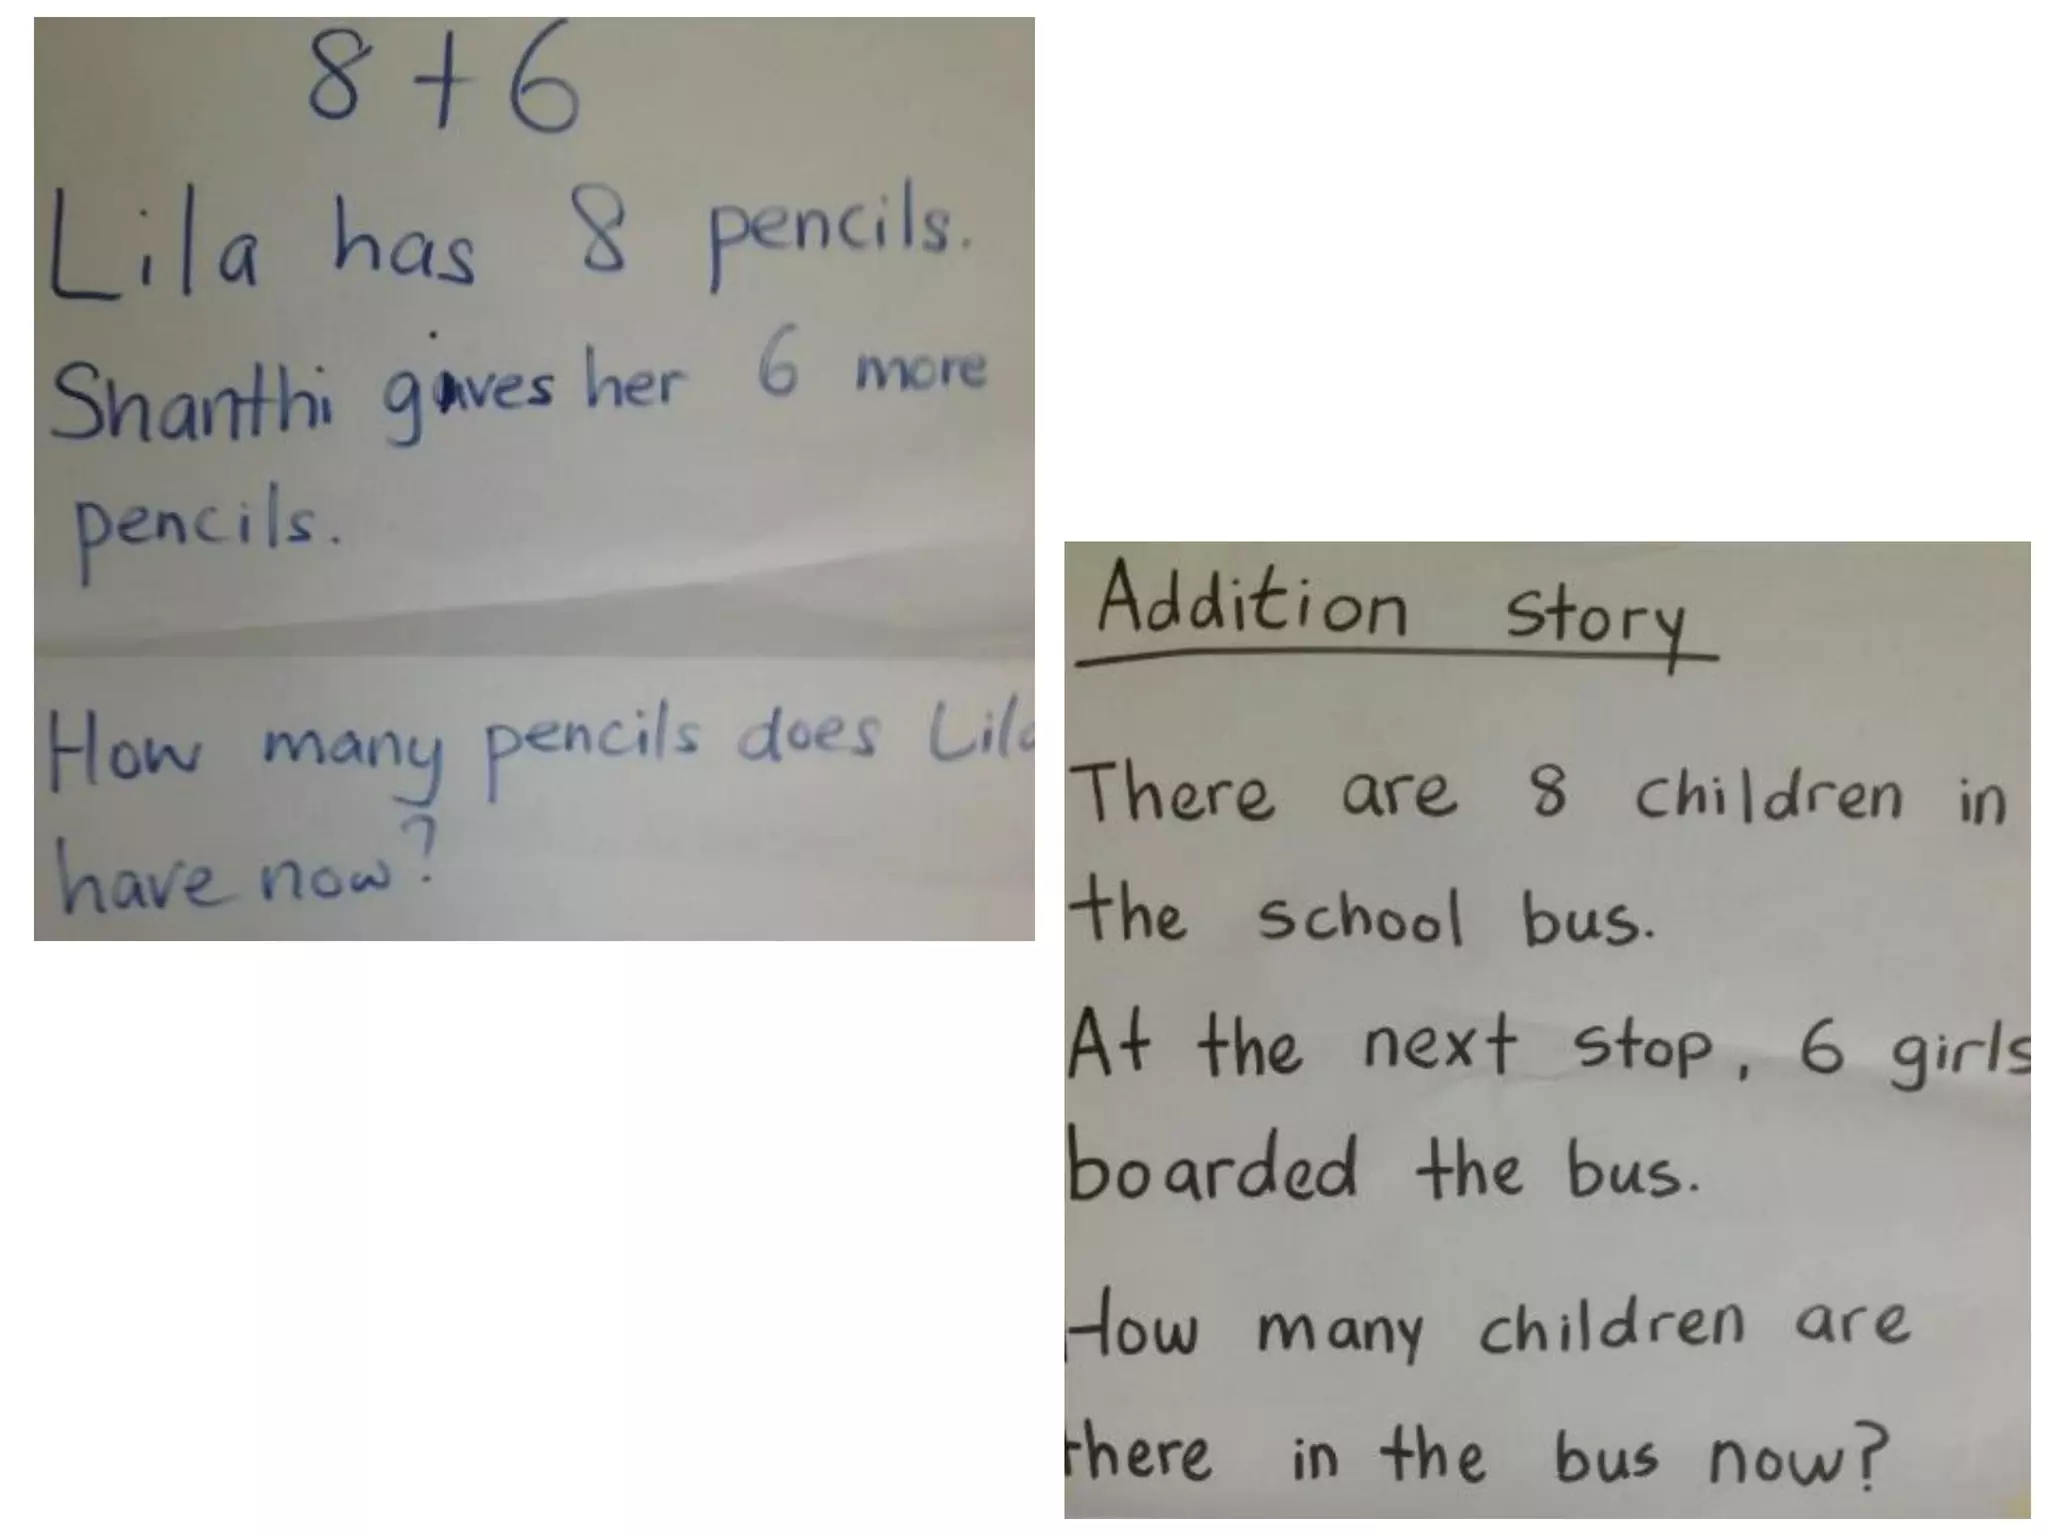 8 + 6
Lila has 8 pencils.
Shanthi gives her 6 more
pencils.
How many pencils does Lila
have now?
Addition story
There are 8 children in
the school bus.
At the next stop, 6 girls
boarded the bus.
How many children are
there in the bus now?